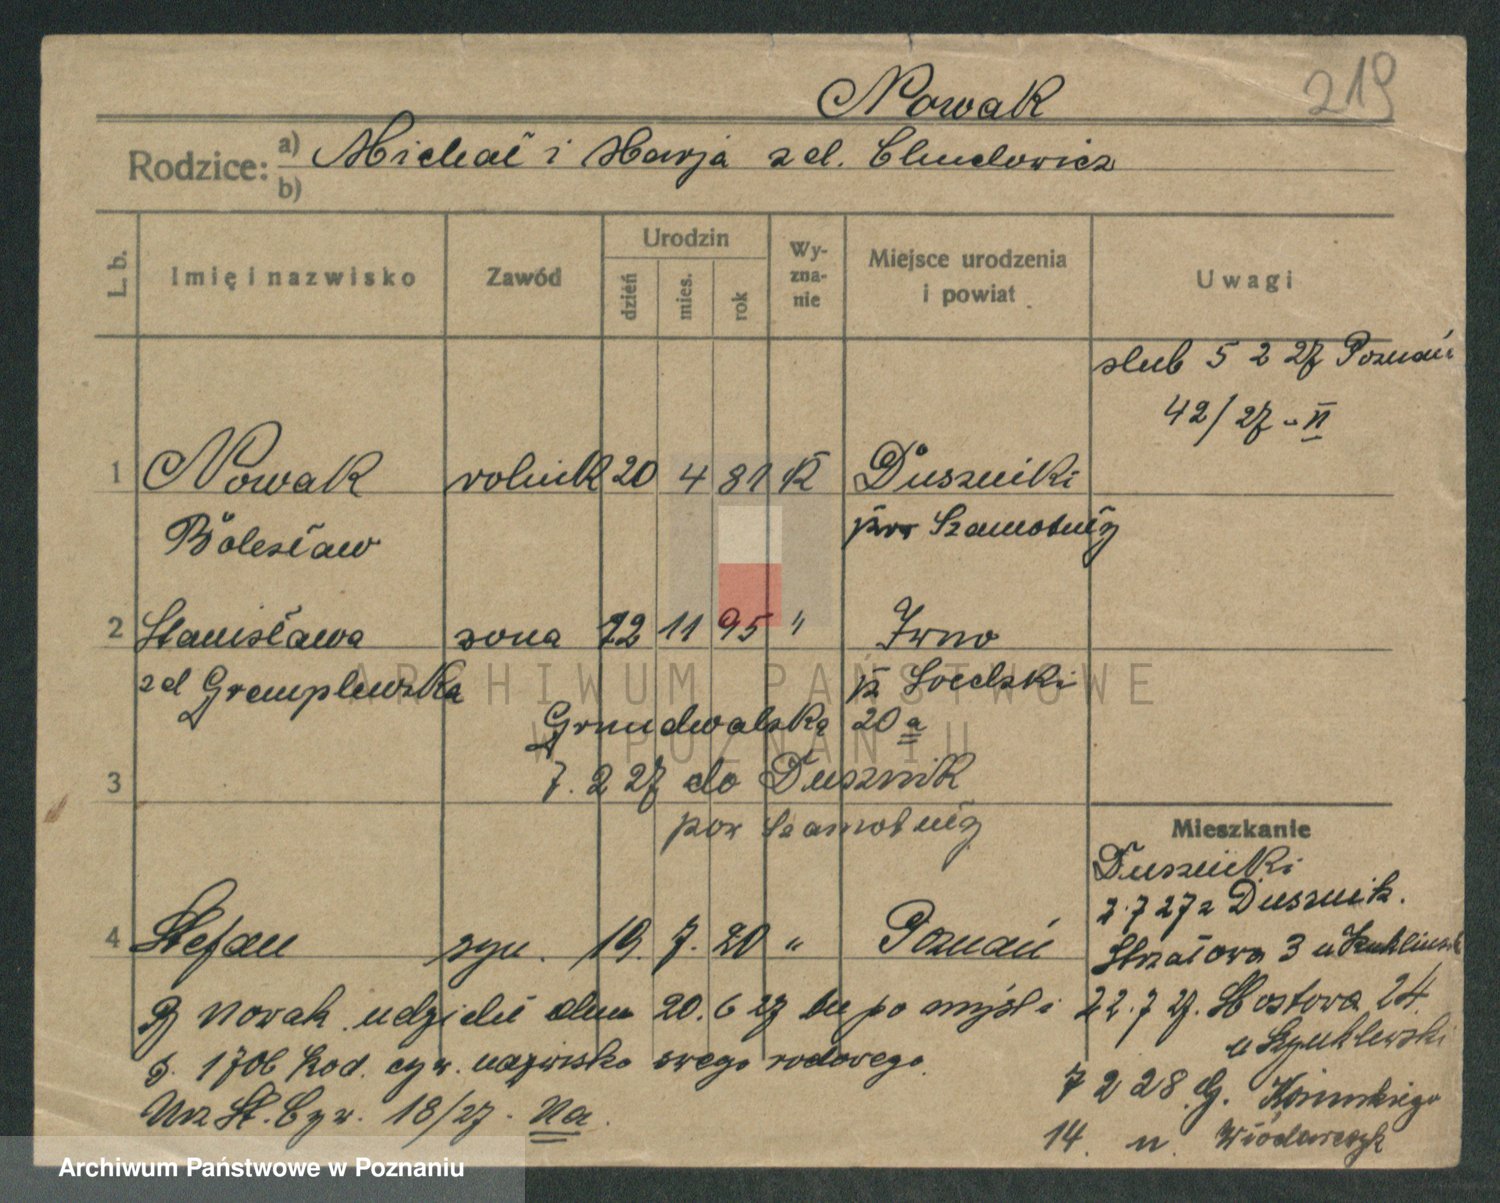 Nowak 219
Rodzice: a) Michał i Marja z d. Chudowicz
b)
L. b. Imię i nazwisko Zawód Urodzin dzień mies. rok Wyzna-nie Miejsce urodzenia i powiat Uwagi
slub 5 2 27 Poznań
42/27 - II
1 Nowak rolnik 20 4 81 k Duszniki
Bolesław pow Szamotuły
2 Stanisława zona 22 11 95 " Irno
z d Gremplewska
Grundwalska 20 a
3 7. 2 27 do Dusznik
pow Szamotuły
Mieszkanie
Duszniki
2.7 27 z Dusznik.
4 Stefan syn. 19. 7. 20 " Poznań
Strzałowa 3 u
B Nowak udzielił dnia 20. 6 27 po myśli
22. 7. 27. Mostowa 24
u
§. 1706 kod. cyw. nazwisko swego rodowego.
7 2 28 G.
Urz St. Cyw. 18/27. Na.
14. u. Włodarczyk
ARCHIWUM PAŃSTWOWE
W POZNANIU
Archiwum Państwowe w Poznaniu